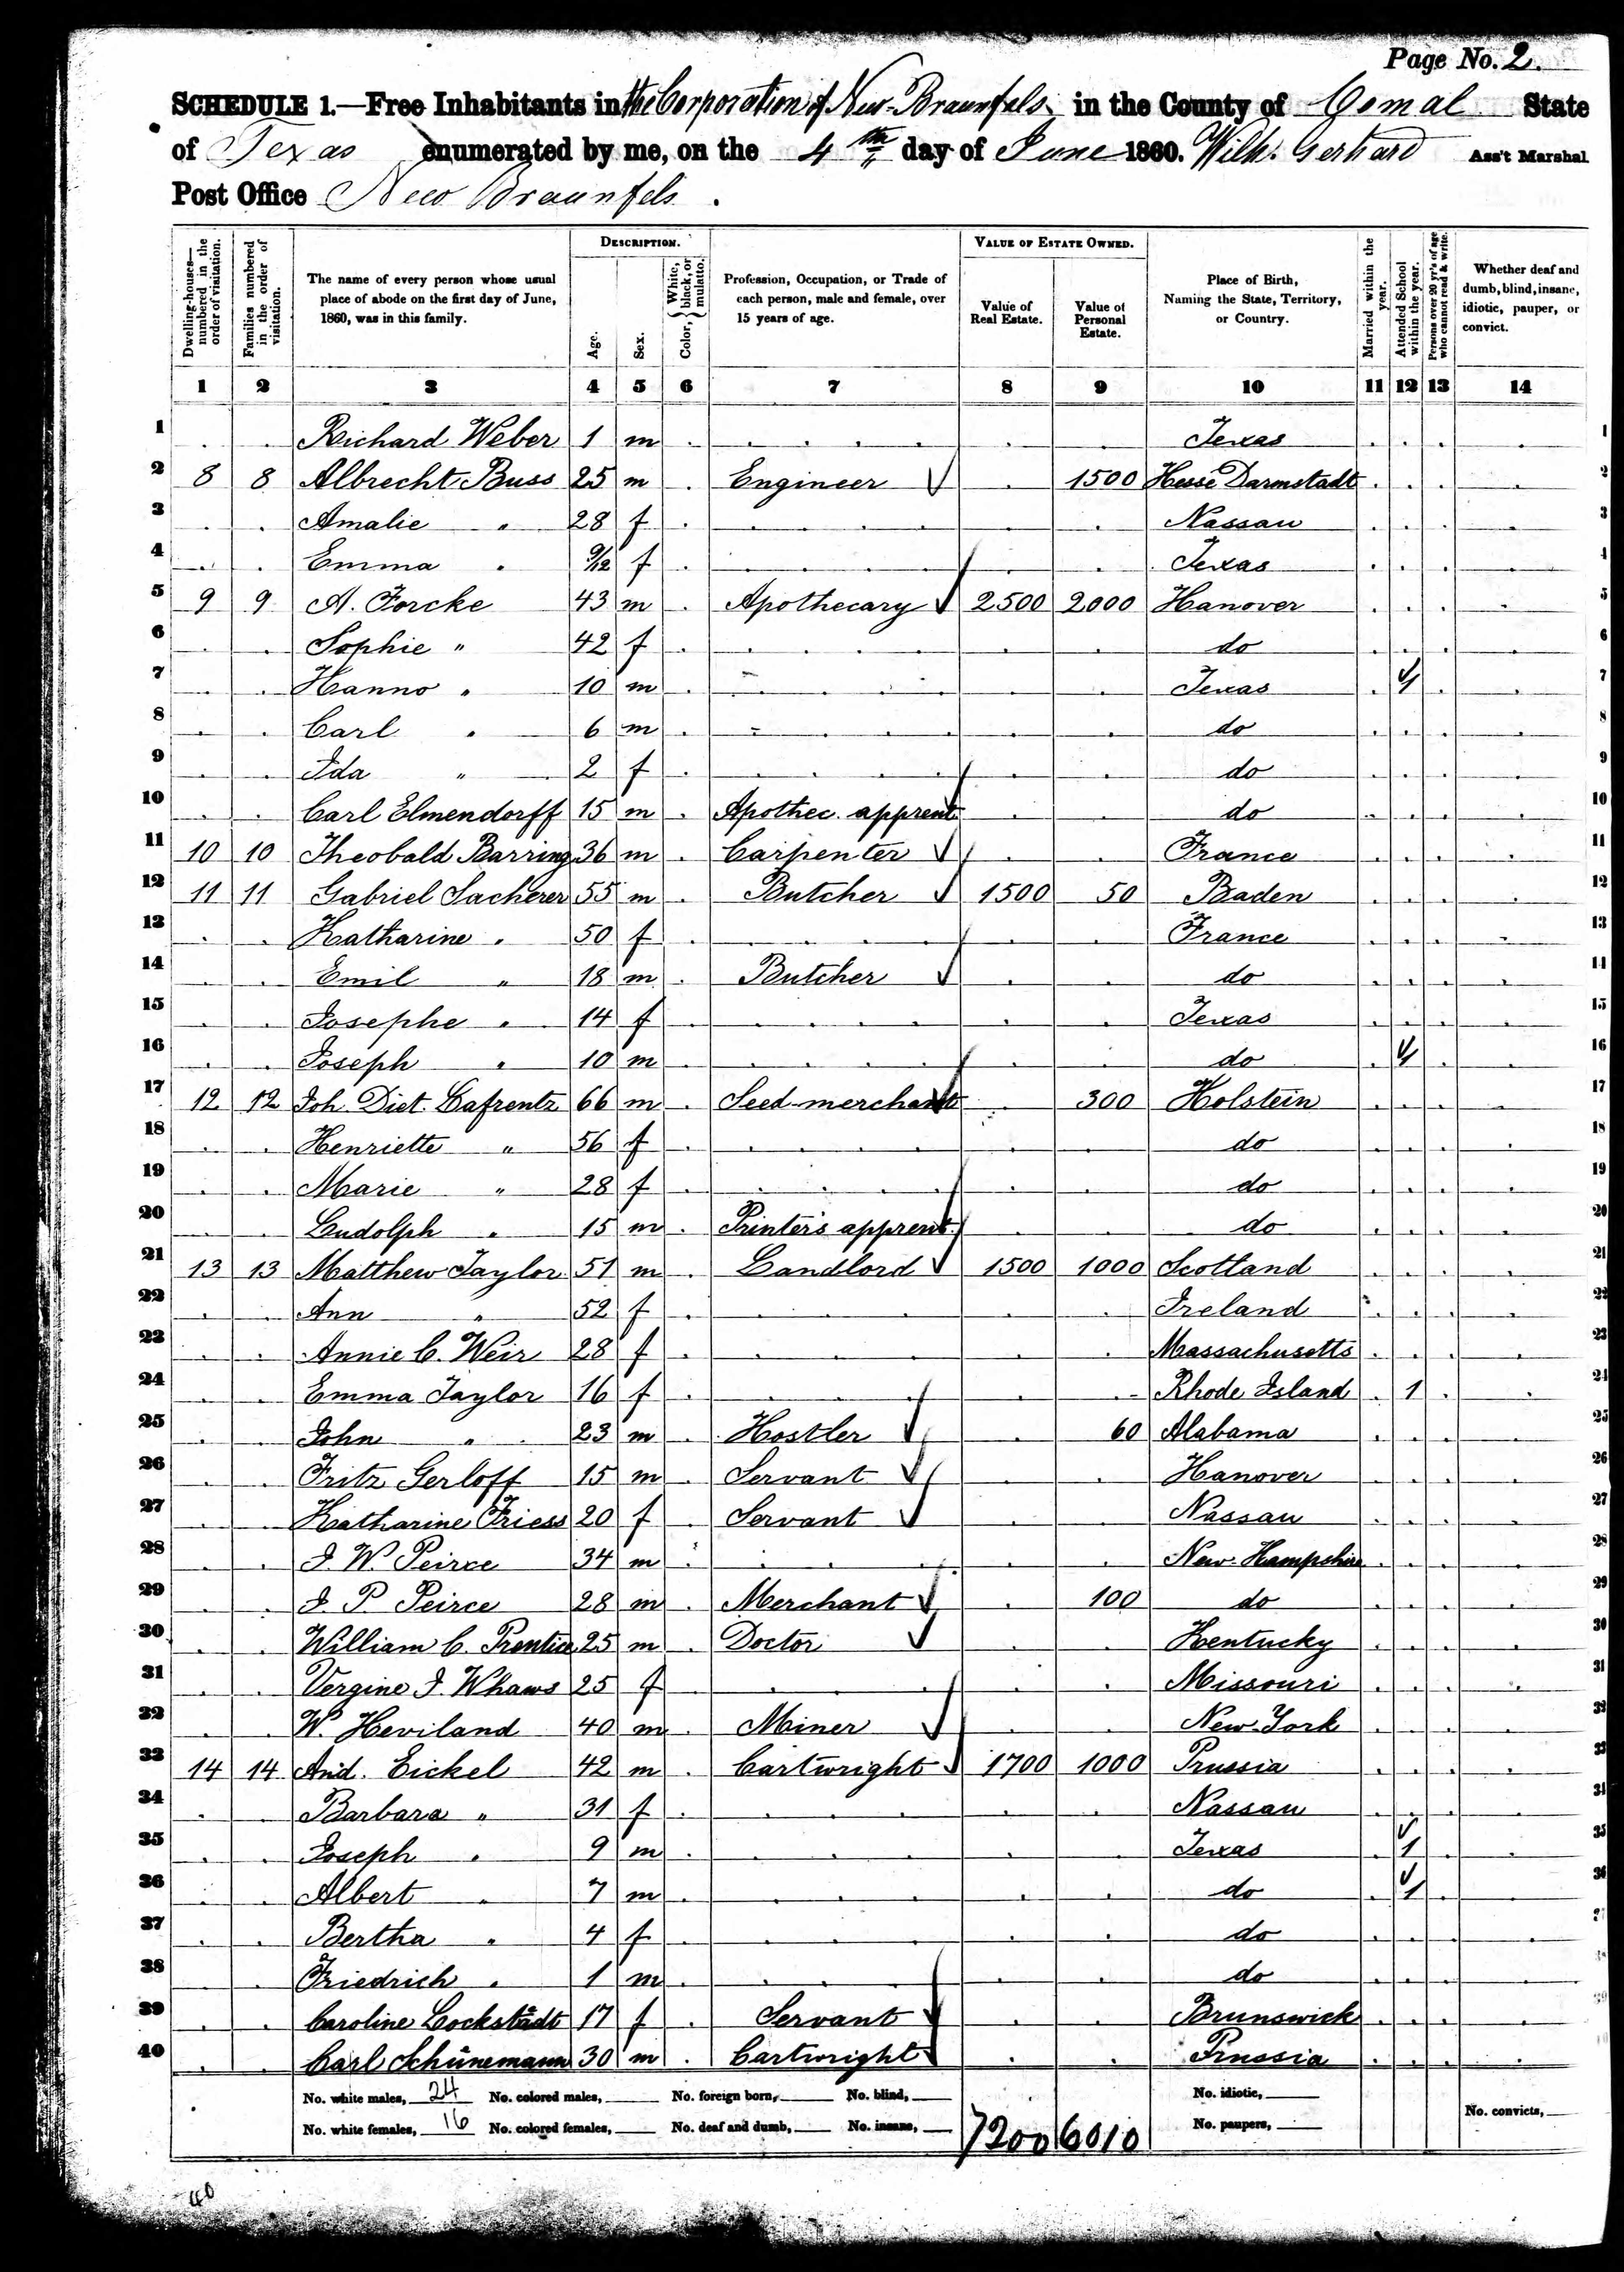 Page No. 2.
SCHEDULE 1.—Free Inhabitants in the Corporation of New-Braunfels in the County of Comal State
of Texas enumerated by me, on the 4th day of June 1860. Wilh. Gerhard Ass't Marshal
Post Office New Braunfels.
DESCRIPTION. VALUE OF ESTATE OWNED.
Dwelling-houses—numbered in the order of visitation. Families numbered in the order of visitation. The name of every person whose usual place of abode on the first day of June, 1860, was in this family. Age. Sex. Color, { White, black, or mulatto. Profession, Occupation, or Trade of each person, male and female, over 15 years of age. Value of Real Estate. Value of Personal Estate. Place of Birth, Naming the State, Territory, or Country. Married within the year. Attended School within the year. Persons over 20 yr's of age who cannot read & write. Whether deaf and dumb, blind, insane, idiotic, pauper, or convict.
1 2 3 4 5 6 7 8 9 10 11 12 13 14
1 Richard Weber 1 m Texas 1
2 8 8 Albrecht Buss 25 m Engineer 1500 Hesse Darmstadt 2
3 Amalie " 28 f Nassau 3
4 Emma " 9/12 f Texas 4
5 9 9 A. Forcke 43 m Apothecary 2500 2000 Hanover 5
6 Sophie " 42 f do 6
7 Hanno " 10 m Texas 1 7
8 Carl " 6 m do 8
9 Ida " 2 f do 9
10 Carl Elmendorff 15 m Apothec. apprent. do 10
11 10 10 Theobald Barring 36 m Carpenter France 11
12 11 11 Gabriel Sacherer 55 m Butcher 1500 50 Baden 12
13 Katharine " 50 f France 13
14 Emil " 18 m Butcher do 14
15 Josephe " 14 f Texas 15
16 Joseph " 10 m do 1 16
17 12 12 Joh. Diet. Lafrentz 66 m Seed-merchant 300 Holstein 17
18 Henriette " 56 f do 18
19 Marie " 28 f do 19
20 Ludolph " 15 m Printer's apprent. do 20
21 13 13 Matthew Taylor 51 m Landlord 1500 1000 Scotland 21
22 Ann " 52 f Ireland 22
23 Annie C. Weir 28 f Massachusetts 23
24 Emma Taylor 16 f Rhode Island 1 24
25 John " 23 m Hostler 60 Alabama 25
26 Fritz Gerloff 15 m Servant Hanover 26
27 Katharine Friess 20 f Servant Nassau 27
28 J. W. Peirce 34 m New-Hampshire 28
29 J. P. Peirce 28 m Merchant 100 do 29
30 William C. Prentice 25 m Doctor Kentucky 30
31 Vergine J. Whaws 25 f Missouri 31
32 W. Heviland 40 m Miner New-York 32
33 14 14 And. Eickel 42 m Cartwright 1700 1000 Prussia 33
34 Barbara " 31 f Nassau 34
35 Joseph " 9 m Texas 1 35
36 Albert " 7 m do 1 36
37 Bertha " 4 f do 37
38 Friedrich " 1 m do 38
39 Caroline Lockstädt 17 f Servant Brunswick 39
40 Carl Schünemann 30 m Cartwright Prussia
No. white males, 24 No. colored males, No. foreign born, No. blind, No. idiotic,
No. white females, 16 No. colored females, No. deaf and dumb, No. insane, 7200 6010 No. paupers, No. convicts,
40